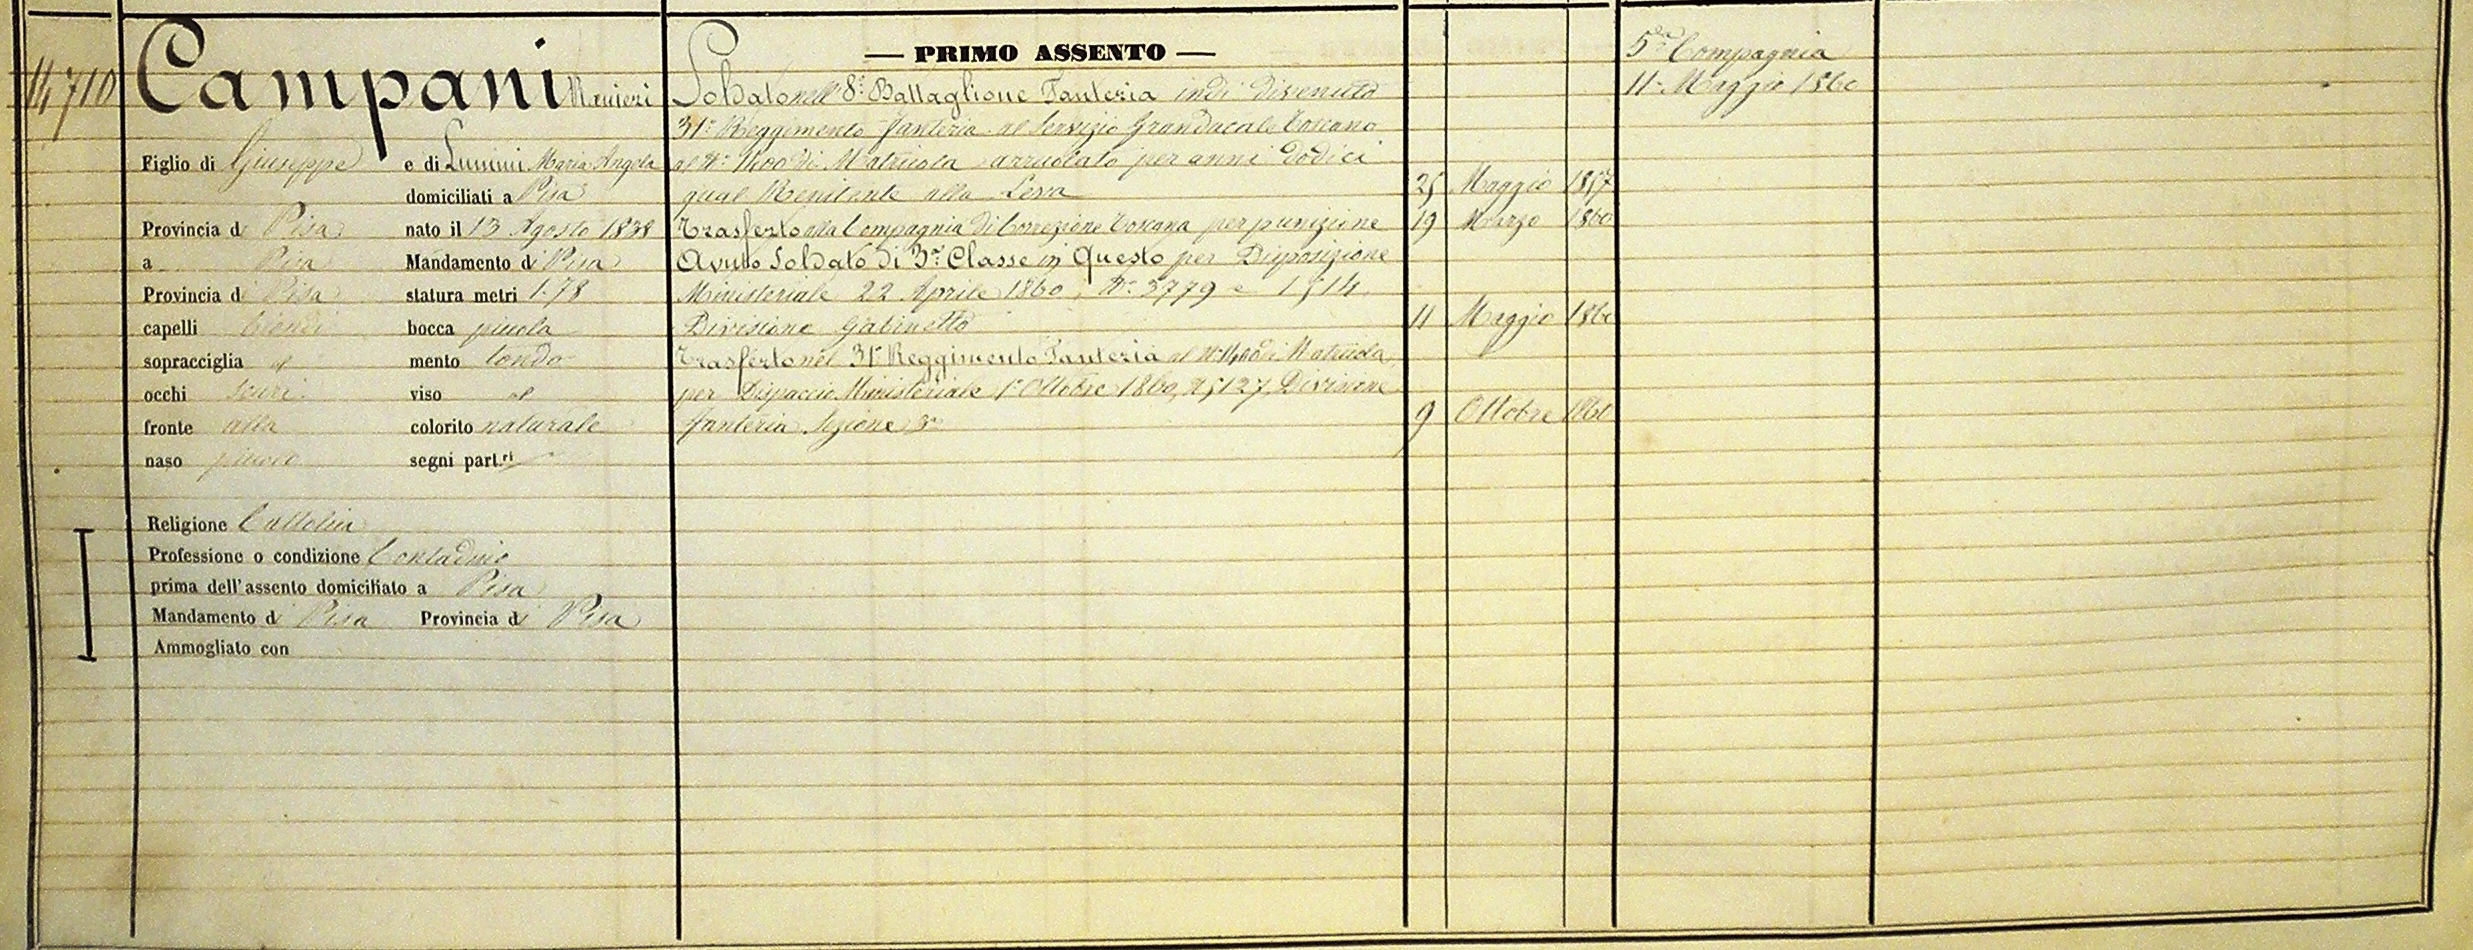 14710
Campani Ranieri
Figlio di Giuseppe e di Lumini Maria Angela
domiciliati a Pisa
Provincia di Pisa nato il 13 Agosto 1838
a Pisa Mandamento di Pisa
Provincia di Pisa statura metri 1.78
capelli biondi bocca piccola
sopracciglia id mento tondo
occhi scuri viso id
fronte alta colorito naturale
naso piccolo segni part.ri
Religione Cattolica
Professione o condizione Contadino
prima dell'assento domiciliato a Pisa
Mandamento di Pisa Provincia di Pisa
Ammogliato con
— PRIMO ASSENTO —
Soldato nell' 8° Battaglione Fanteria indi divenuto
31° Reggimento Fanteria al Servizio Granducale Toscano
al N° 1400 di Matricola arruolato per anni dodici
qual Renitente alla Leva 25 Maggio 1857
Trasferto alla Compagnia di Correzione Toscana per punizione 19 Marzo 1860
Avuto Soldato di 3a Classe in Questo per Disposizione
Ministeriale 22 Aprile 1860, N° 3779 e 1514
Divisione Gabinetto 11 Maggio 1860
Trasferto nel 31° Reggimento Fanteria al N° 1400 di Matricola,
per Dispaccio Ministeriale 1° Ottobre 1860, N 5127, Divisione
Fanteria Sezione 3a 9 Ottobre 1860
5a Compagnia
11 Maggio 1860